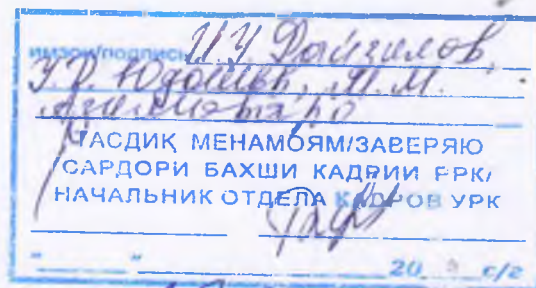 имзои/подпись И.У. Файзилов,
У.Р. Юдошев, М.М.
ТАСДИҚ МЕНАМОЯМ/ЗАВЕРЯЮ
САРДОРИ БАХШИ КАДРИИ РРК/
НАЧАЛЬНИК ОТДЕЛА КАДРОВ УРК
" " 20 с/г